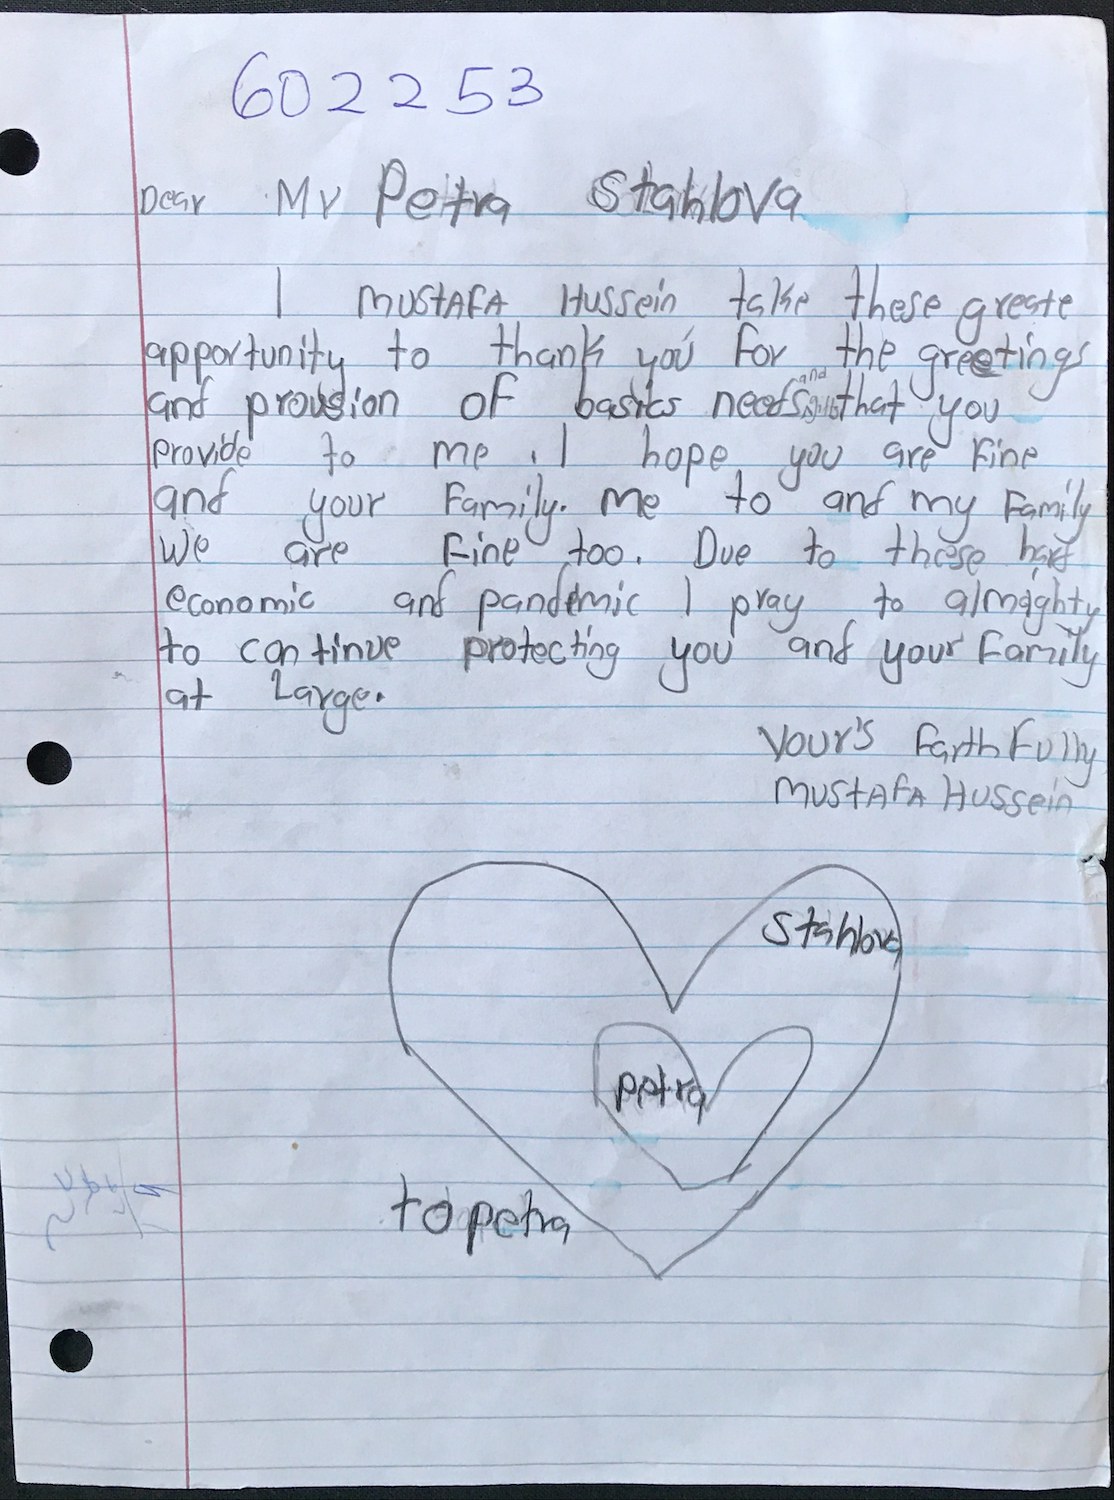 602253
Dear Mr Petra Stahlova
I MUSTAFA HUSSein take these greate
apportunity to thank you for the greetings
and provision of basics needs and that you
provide to me. I hope you are Fine
and your Family. Me to and my Family
We are Fine too. Due to these hard
economic and pandemic I pray to almighty
to continue protecting you and your Family
at Large.
Your's FarthFully
MUSTAFA HUSSein
Stahlova
petra
to petra